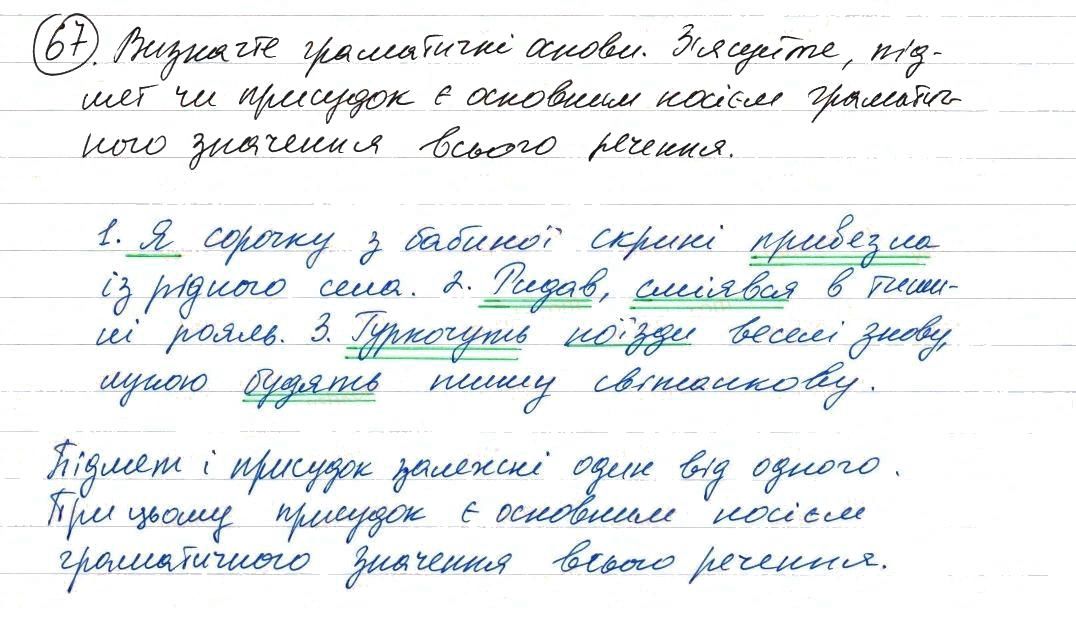 67. Визначте граматичні основи. З'ясуйте, під-
мет чи присудок є основним носієм граматич-
ного значення всього речення.
1. Я сорочку з бабиної скрині привезла
із рідного села. 2. Ридав, сміявся в тиши-
ні рояль. 3. Туркочуть поїзди веселі знову,
луною будять тишу світанкову.
Підмет і присудок залежні один від одного.
При цьому присудок є основним носієм
граматичного значення всього речення.